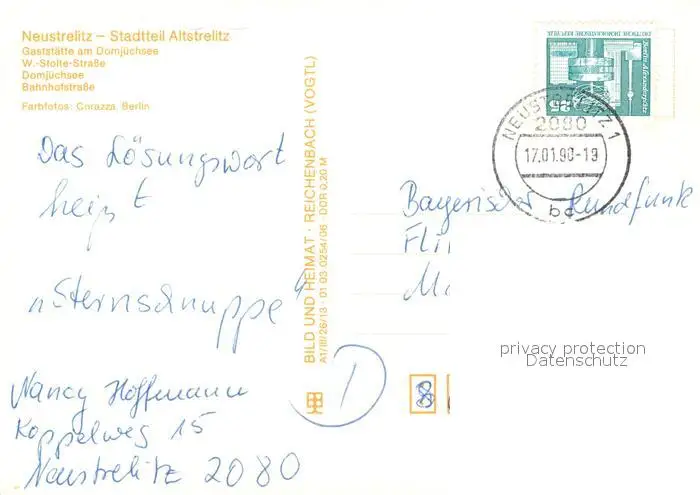 Neustrelitz – Stadtteil Altstrelitz
Gaststätte am Domjüchsee
W.-Stolte-Straße
Domjüchsee
Bahnhofstraße
Farbfotos: Corazza, Berlin
Das Lösungswort
heißt
"Sternschnuppe"
Nancy Hoffmann
Koppelweg 15
Neustrelitz 2080
BILD UND HEIMAT · REICHENBACH (VOGTL)
A1/III/26/13 · 01 03 0254/06 · DDR 0,20 M
DEUTSCHE DEMOKRATISCHE REPUBLIK
Berlin, Alexanderplatz
25
NEUSTRELITZ 1
2080
17.01.90-19
bc
Bayerischer Rundfunk
D
8
privacy protection
Datenschutz